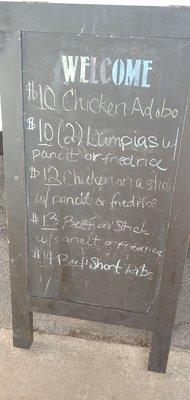 WELCOME
$10 Chicken Adobo
$10 (2) Lumpias w/
pancit or friedrice
$12 Chicken on a stick
w/ pancit or friedrice
$13 Beef on Stick
w/ pancit or friedrice
$14 Beef Short ribs